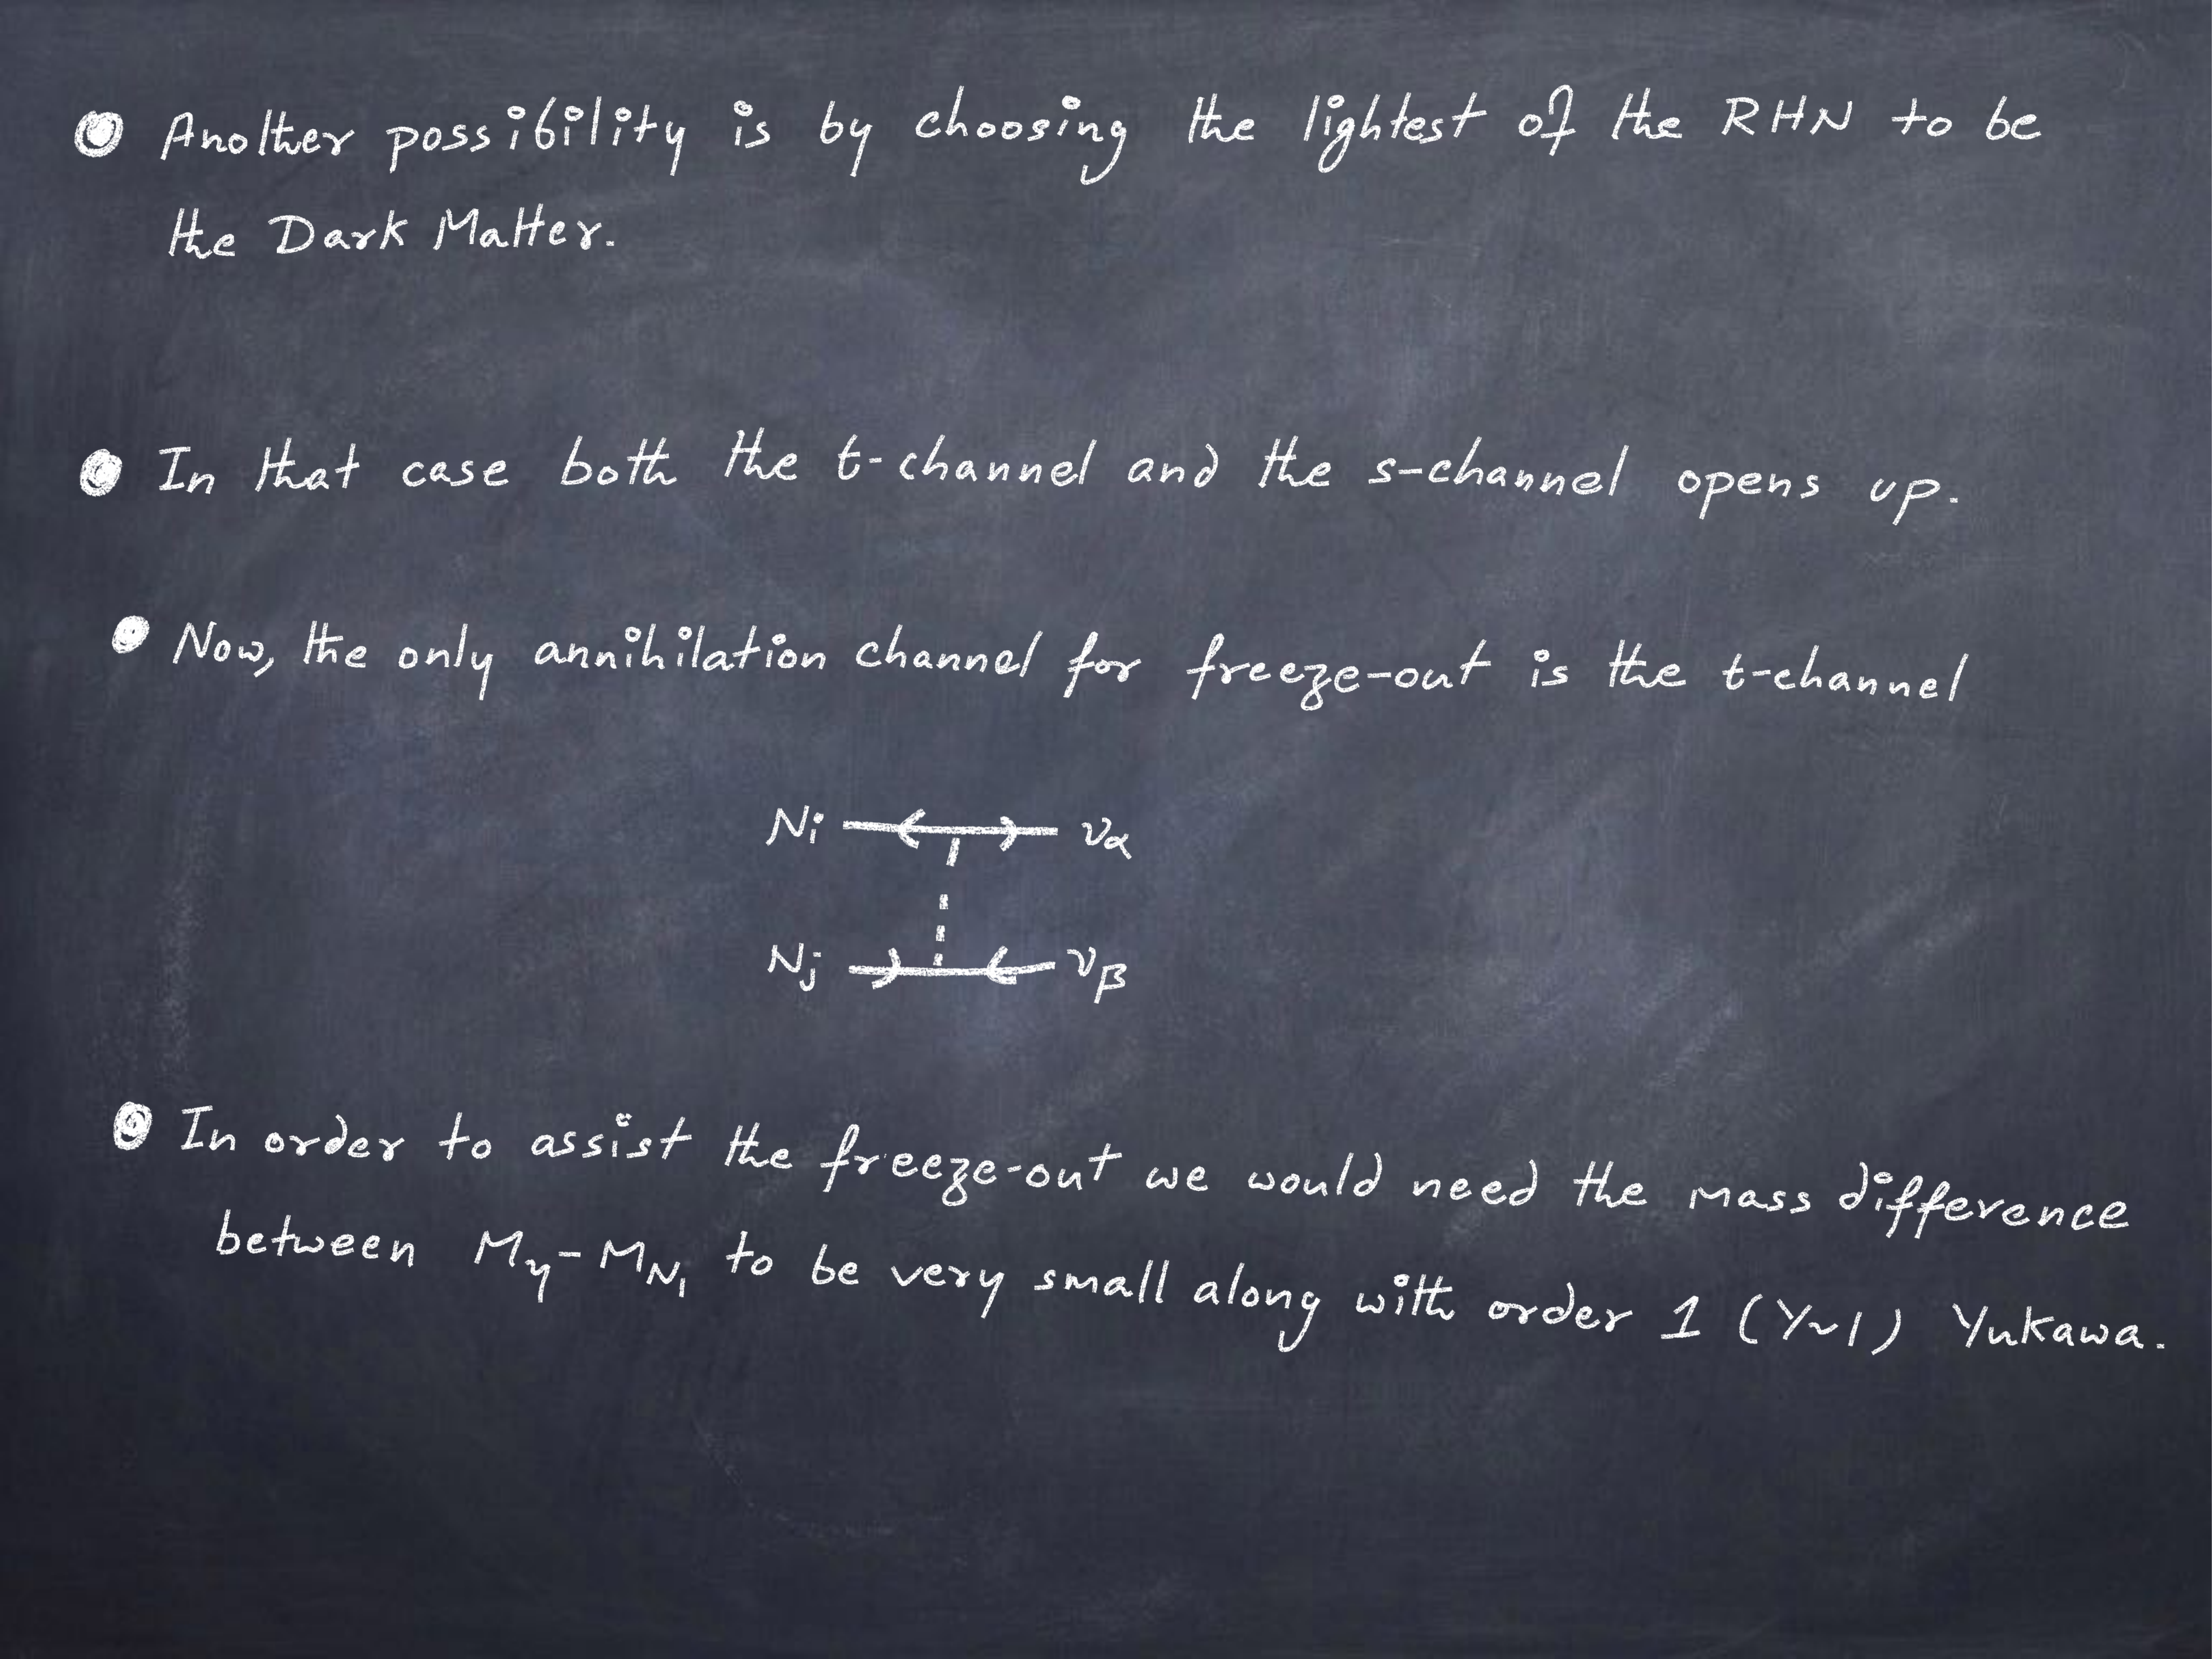 Another possibility is by choosing the lightest of the RHN to be
the Dark Matter.
In that case both the t-channel and the s-channel opens up.
Now, the only annihilation channel for freeze-out is the t-channel
Ni να
Nj νβ
In order to assist the freeze-out we would need the mass difference
between Mη-MN₁ to be very small along with order 1 (Y~1) Yukawa.